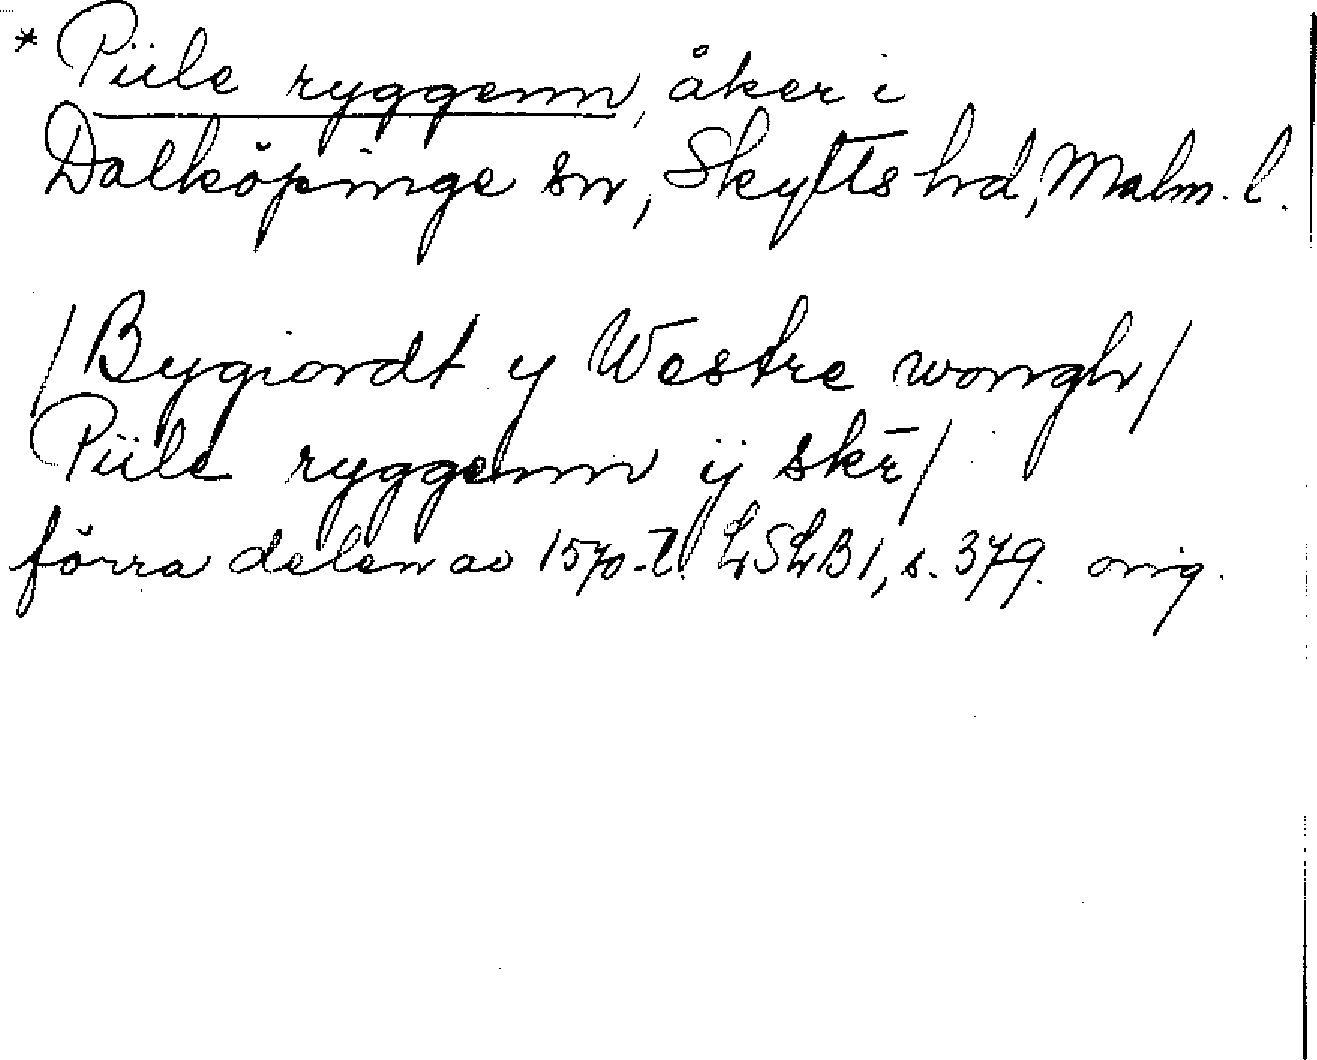 * Piile ryggenn, åker i
Dalköpinge sn, Skytts hd, Malm. l.
/Bygiordt y Westre wongh/
Piile ryggenn ij skē/
förra delen av 1570-t. LSLB 1, s. 379. orig.